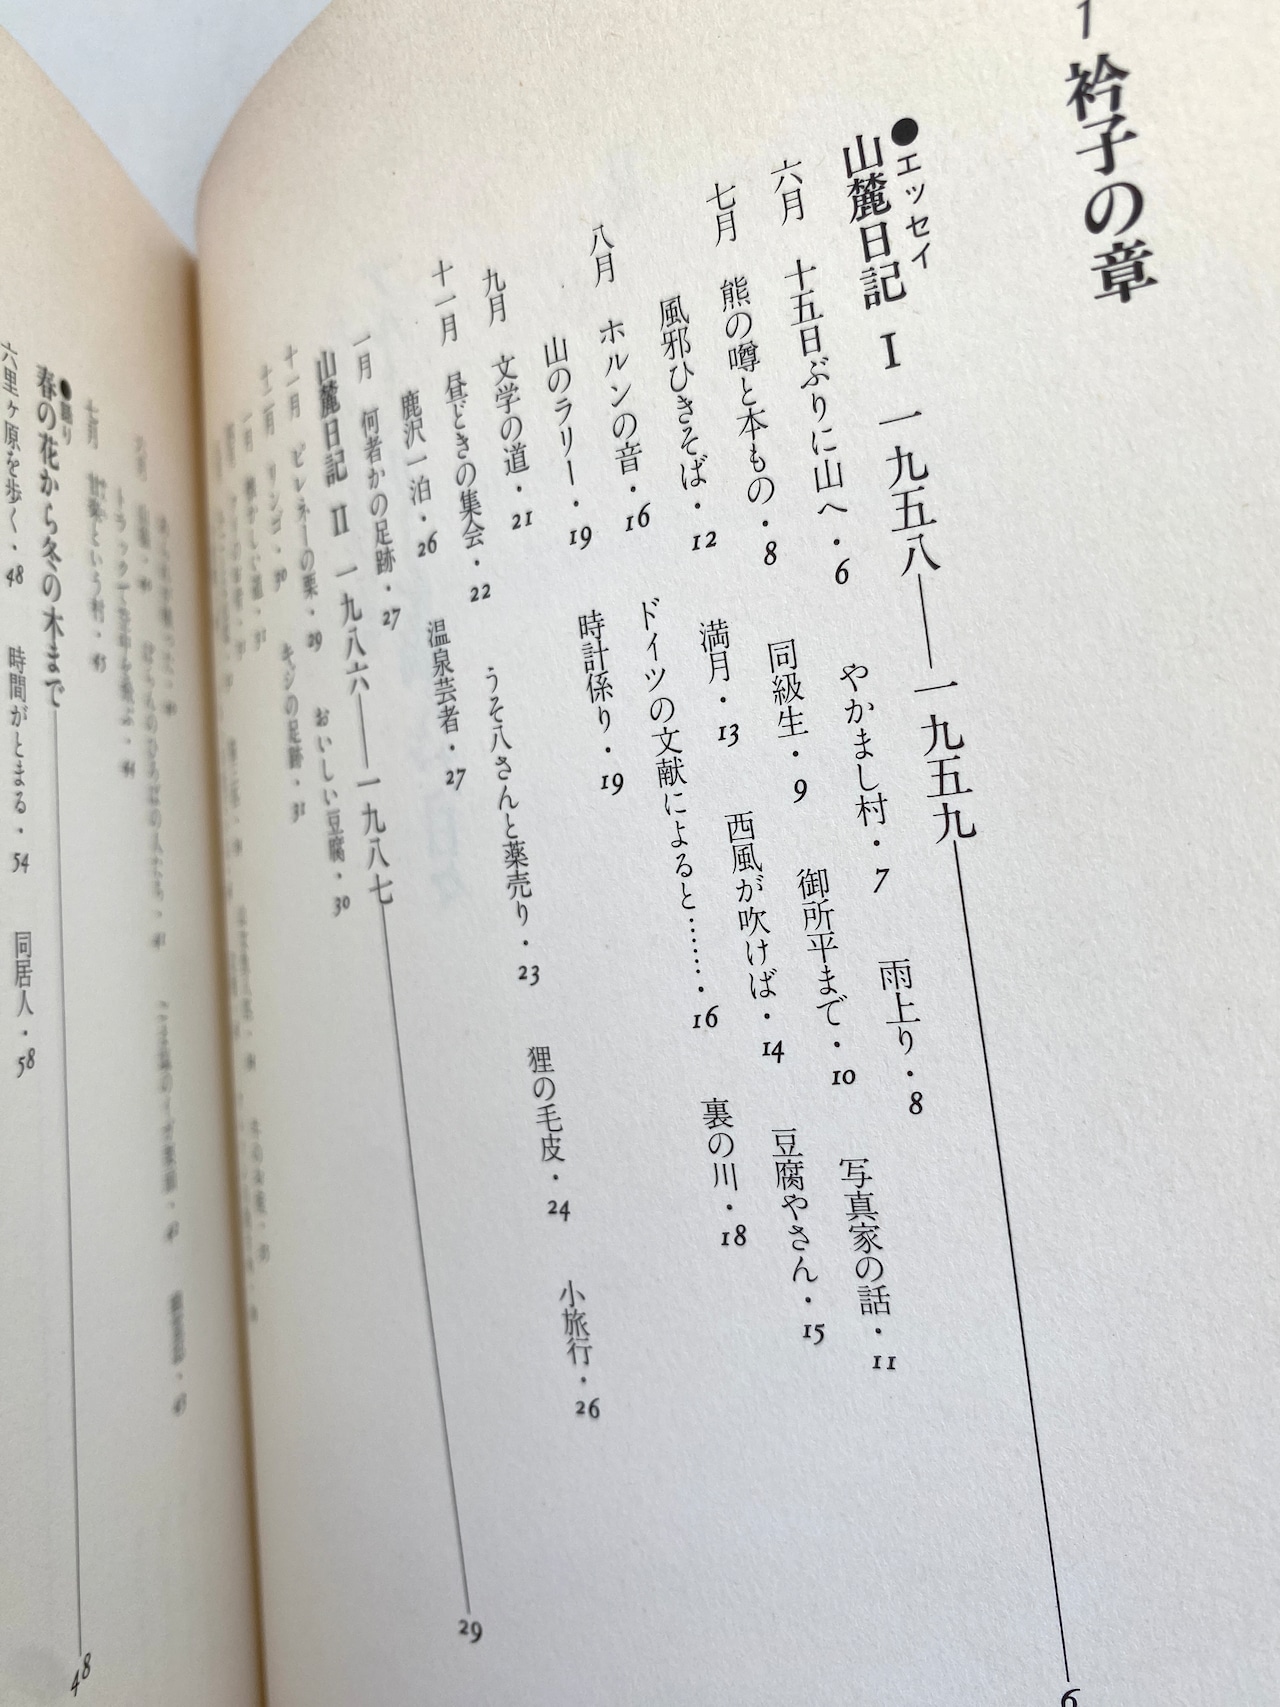 1 衿子の章
●エッセイ
山麓日記 Ⅰ 一九五八――一九五九 6
六月 十五日ぶりに山へ・6 やかまし村・7 雨上り・8
七月 熊の噂と本もの・8 同級生・9 御所平まで・10 写真家の話・11
風邪ひきそば・12 満月・13 西風が吹けば・14 豆腐やさん・15
八月 ホルンの音・16 ドイツの文献によると……・16 裏の川・18
山のラリー・19 時計係り・19
九月 文学の道・21
十一月 昼どきの集会・22 うそ八さんと薬売り・23 狸の毛皮・24 小旅行・26
鹿沢一泊・26 温泉芸者・27
一月 何者かの足跡・27
山麓日記 Ⅱ 一九八六――一九八七 29
十一月 ピレネーの栗・29 おいしい豆腐・30
十二月 リンゴ・30 キジの足跡・31
一月
七月 という村・45
●語り
春の花から冬の木まで 48
六里ヶ原を歩く・48 時間がとまる・54 同居人・58